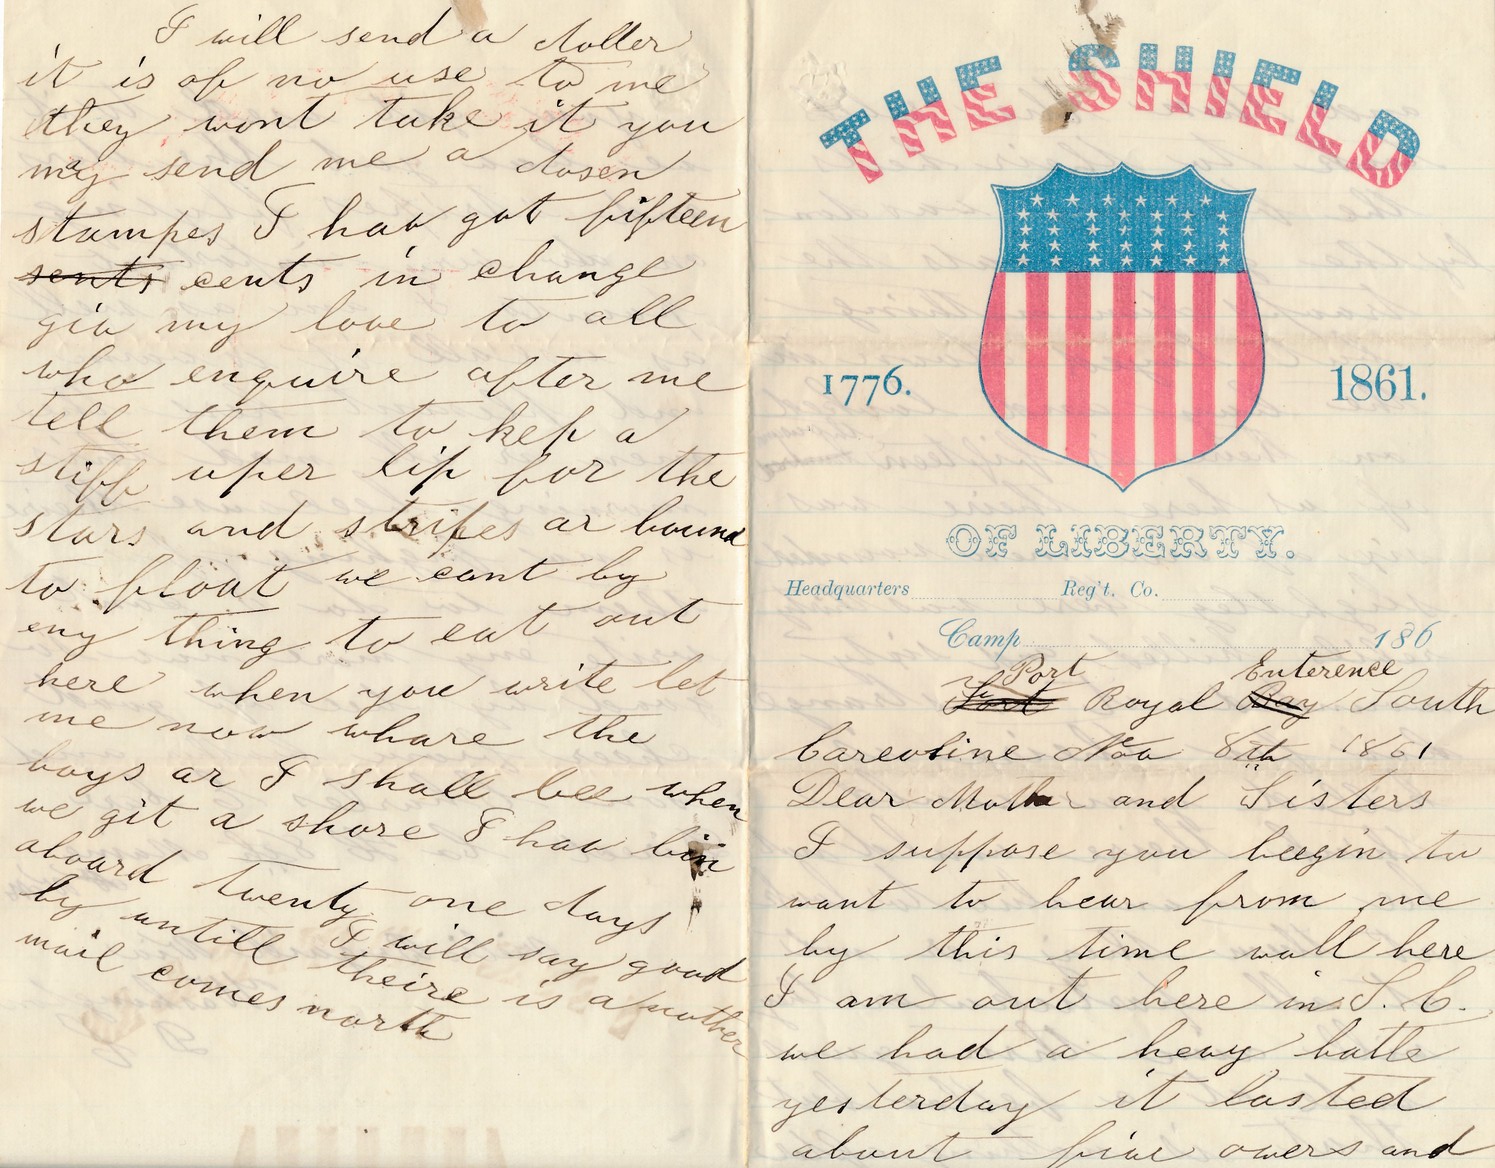 I will send a doller
it is of no use to me
they wont take it you
my send me a dosen
stampes I hav got fifteen
sents cents in change
giv my love to all
who enquire after me
tell them to kep a
stiff uper lip for the
stars and stripes ar bound
to float we cant by
eny thing to eat out
here when you write let
me now whare the
boys ar I shall bee when
we git a shore I hav bin
aboard twenty one days
by untill I will say good
mail comes north theire is a nother
THE SHIELD
1776. 1861.
OF LIBERTY.
Headquarters Reg't. Co.
Camp 186
Port Enterence
Royal Bay South
Careoline Nov 8th 1861
Dear Mother and Sisters
I suppose you beegin to
want to hear from me
by this time wall here
I am out here in S. C.
we had a hevy batle
yesterday it lasted
about five owers and